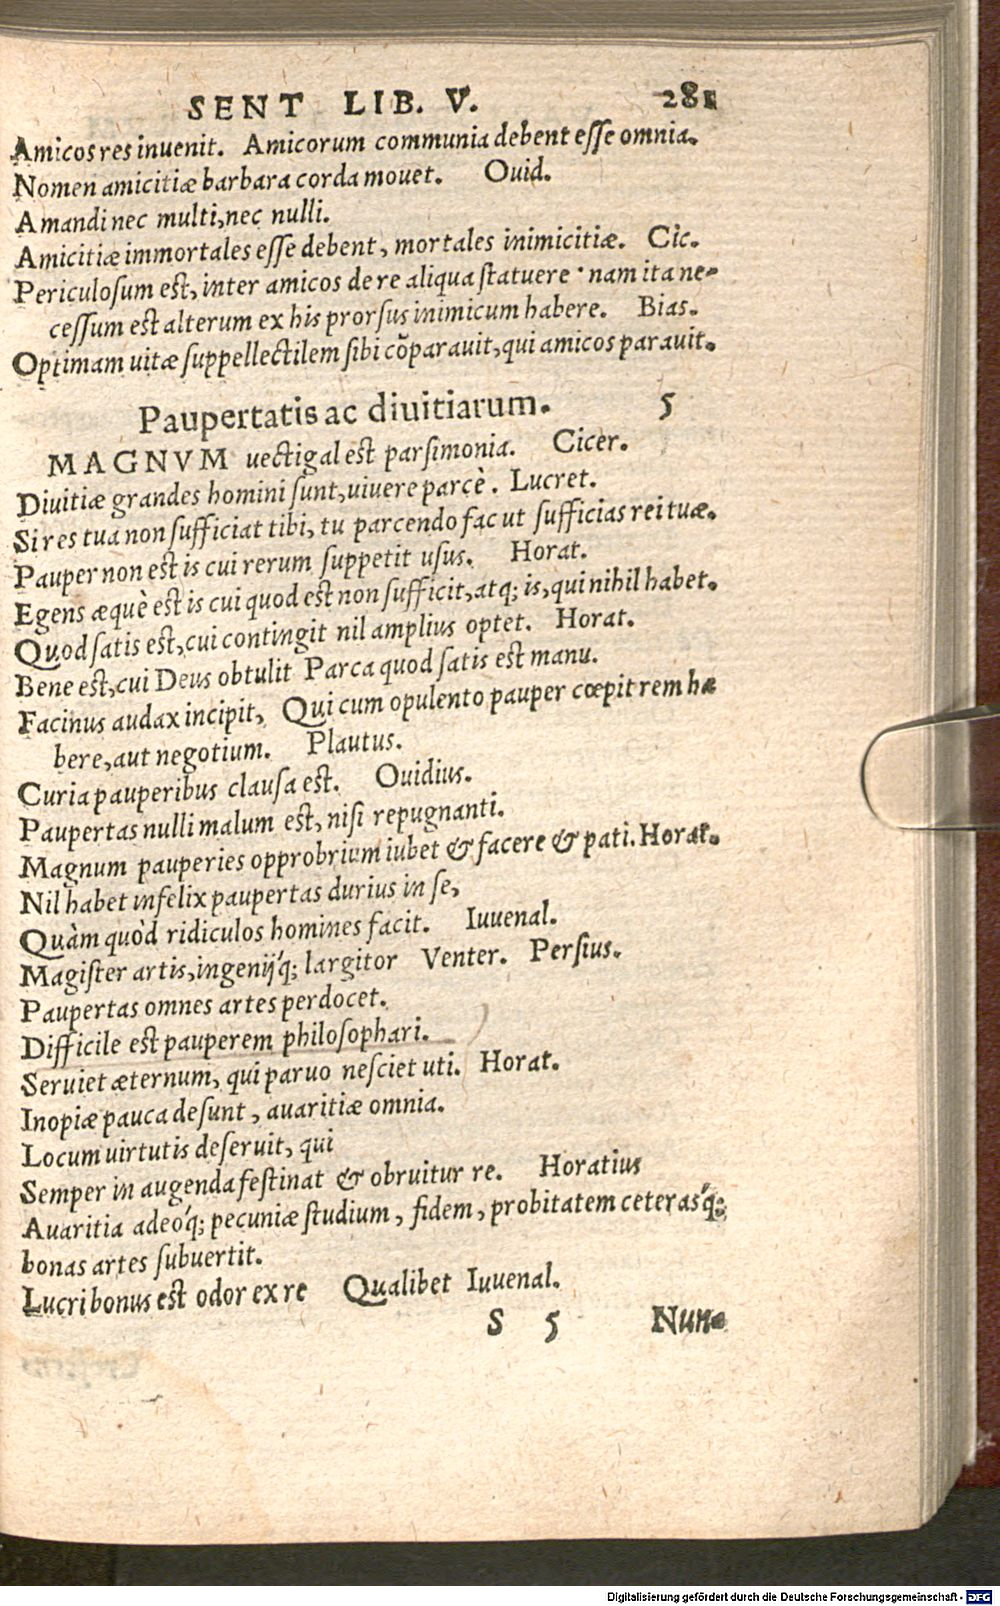 SENT LIB. V. 281
Amicos res inuenit. Amicorum communia debent esse omnia.
Nomen amicitiæ barbara corda mouet. Ouid.
Amandi nec multi, nec nulli.
Amicitiæ immortales esse debent, mortales inimicitiæ. Cic.
Periculosum est, inter amicos de re aliqua statuere · nam ita ne-
cessum est alterum ex his prorsus inimicum habere. Bias.
Optimam uitæ suppellectilem sibi cōparauit, qui amicos parauit.
Paupertatis ac diuitiarum. 5
MAGNVM uectigal est parsimonia. Cicer.
Diuitiæ grandes homini sunt, uiuere parcè. Lucret.
Si res tua non sufficiat tibi, tu parcendo fac ut sufficias rei tuæ.
Pauper non est is cui rerum suppetit usus. Horat.
Egens æquè est is cui quod est non sufficit, atq; is, qui nihil habet.
Quod satis est, cui contingit nil amplius optet. Horat.
Bene est, cui Deus obtulit Parca quod satis est manu.
Facinus audax incipit, Qui cum opulento pauper cœpit rem ha-
bere, aut negotium. Plautus.
Curia pauperibus clausa est. Ouidius.
Paupertas nulli malum est, nisi repugnanti.
Magnum pauperies opprobrium iubet & facere & pati. Horat.
Nil habet infelix paupertas durius in se,
Quàm quòd ridiculos homines facit. Iuuenal.
Magister artis, ingenij'q; largitor Venter. Persius.
Paupertas omnes artes perdocet.
Difficile est pauperem philosophari.
Seruiet æternum, qui paruo nesciet uti. Horat.
Inopiæ pauca desunt, auaritiæ omnia.
Locum uirtutis deseruit, qui
Semper in augenda festinat & obruitur re. Horatius
Auaritia adeo'q; pecuniæ studium, fidem, probitatem ceteras'q;
bonas artes subuertit.
Lucri bonus est odor ex re Qualibet Iuuenal.
S 5 Num-
Digitalisierung gefördert durch die Deutsche Forschungsgemeinschaft - DFG